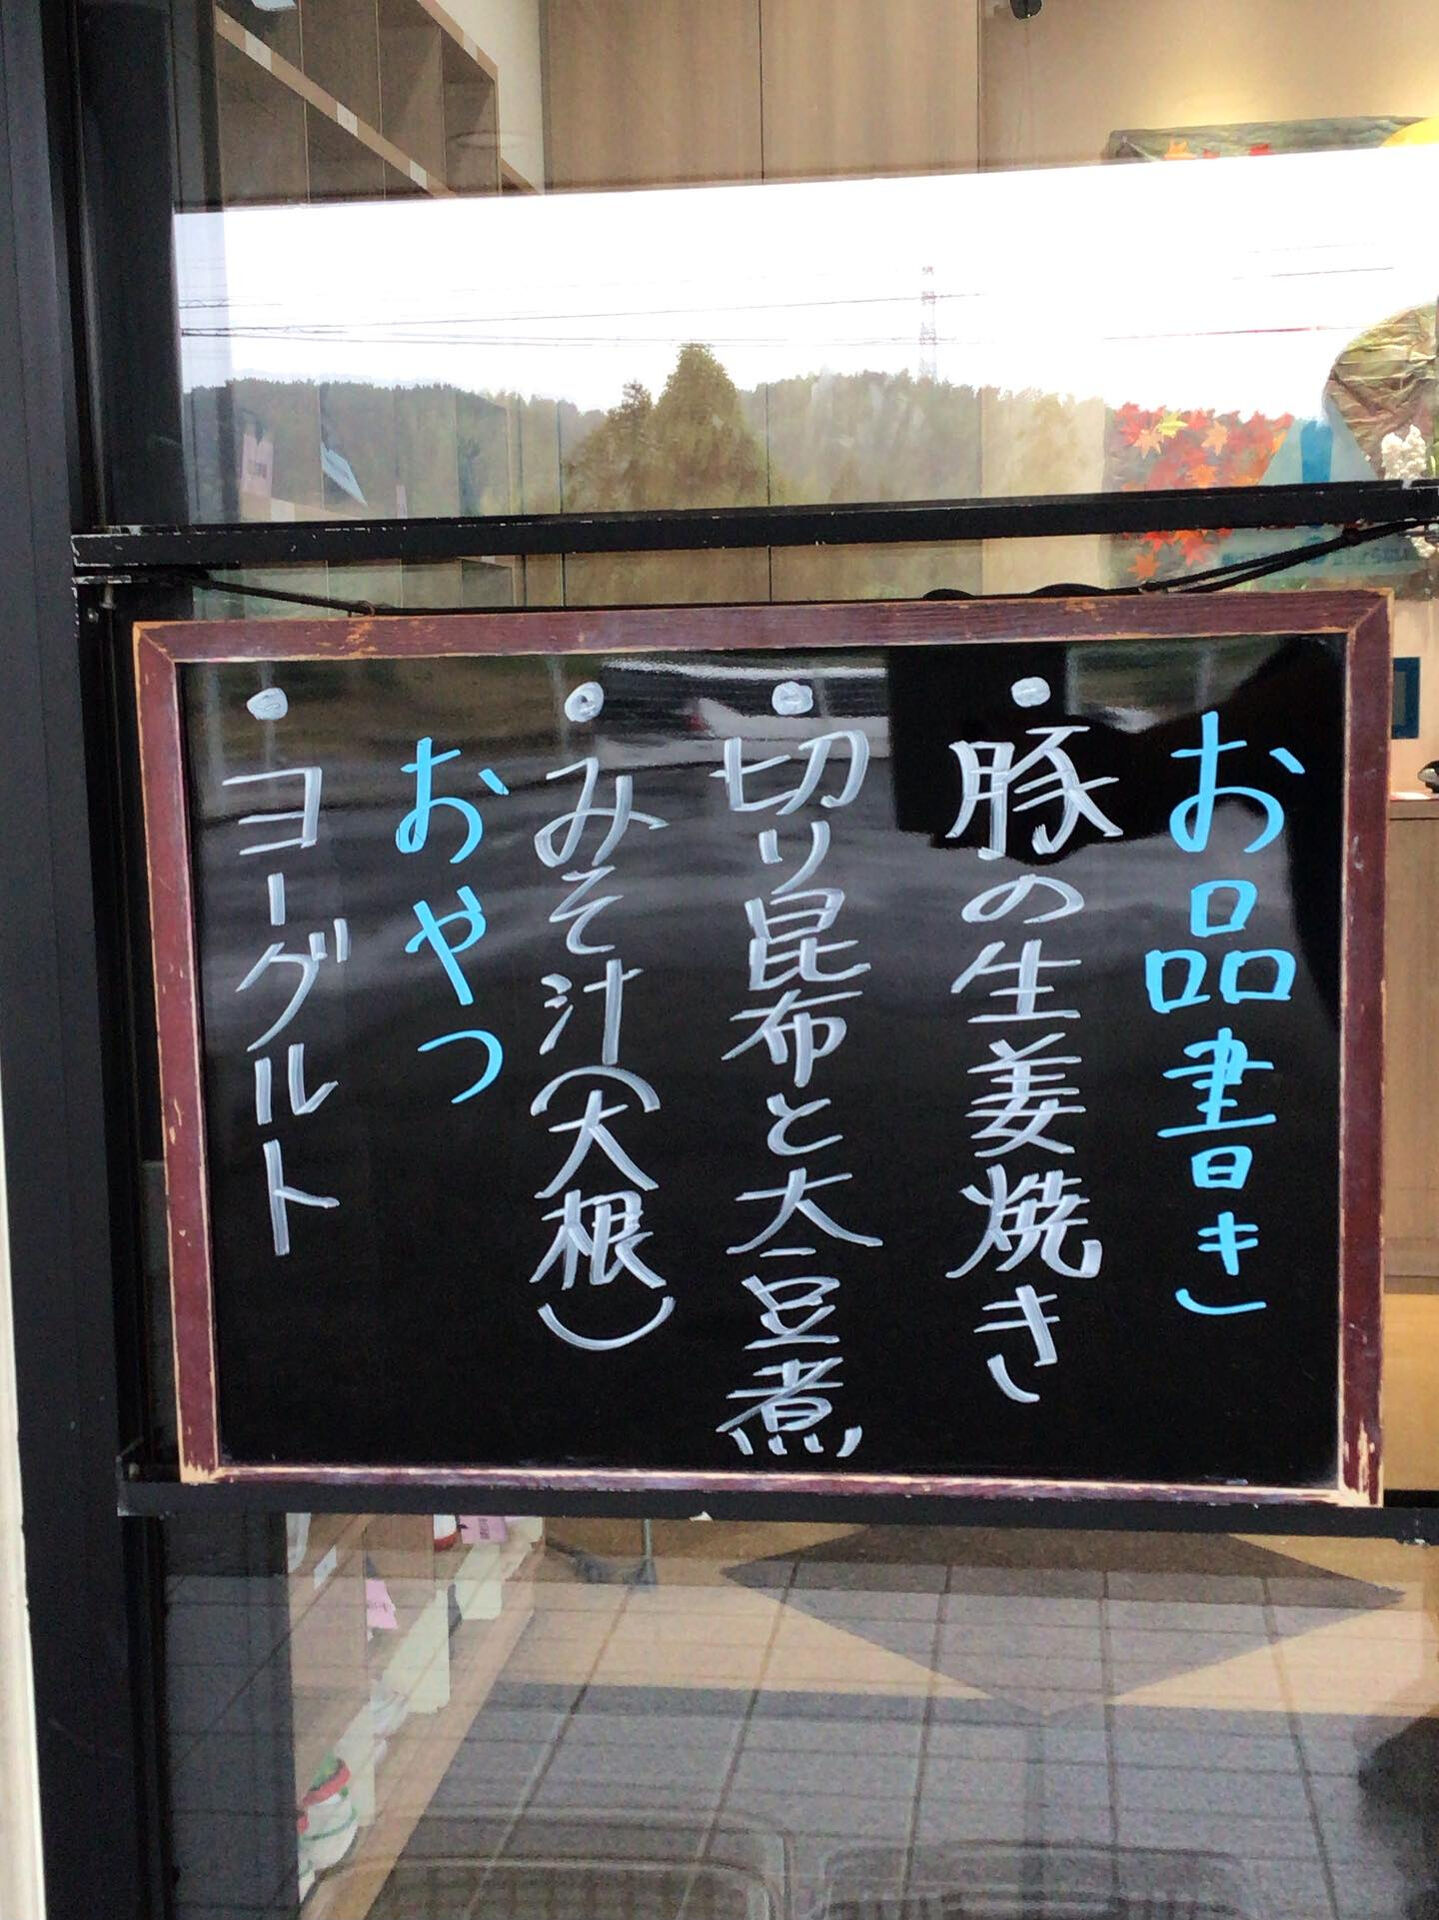 お品書き
・豚の生姜焼き
・切り昆布と大豆煮
・みそ汁(大根)
おやつ
・ヨーグルト